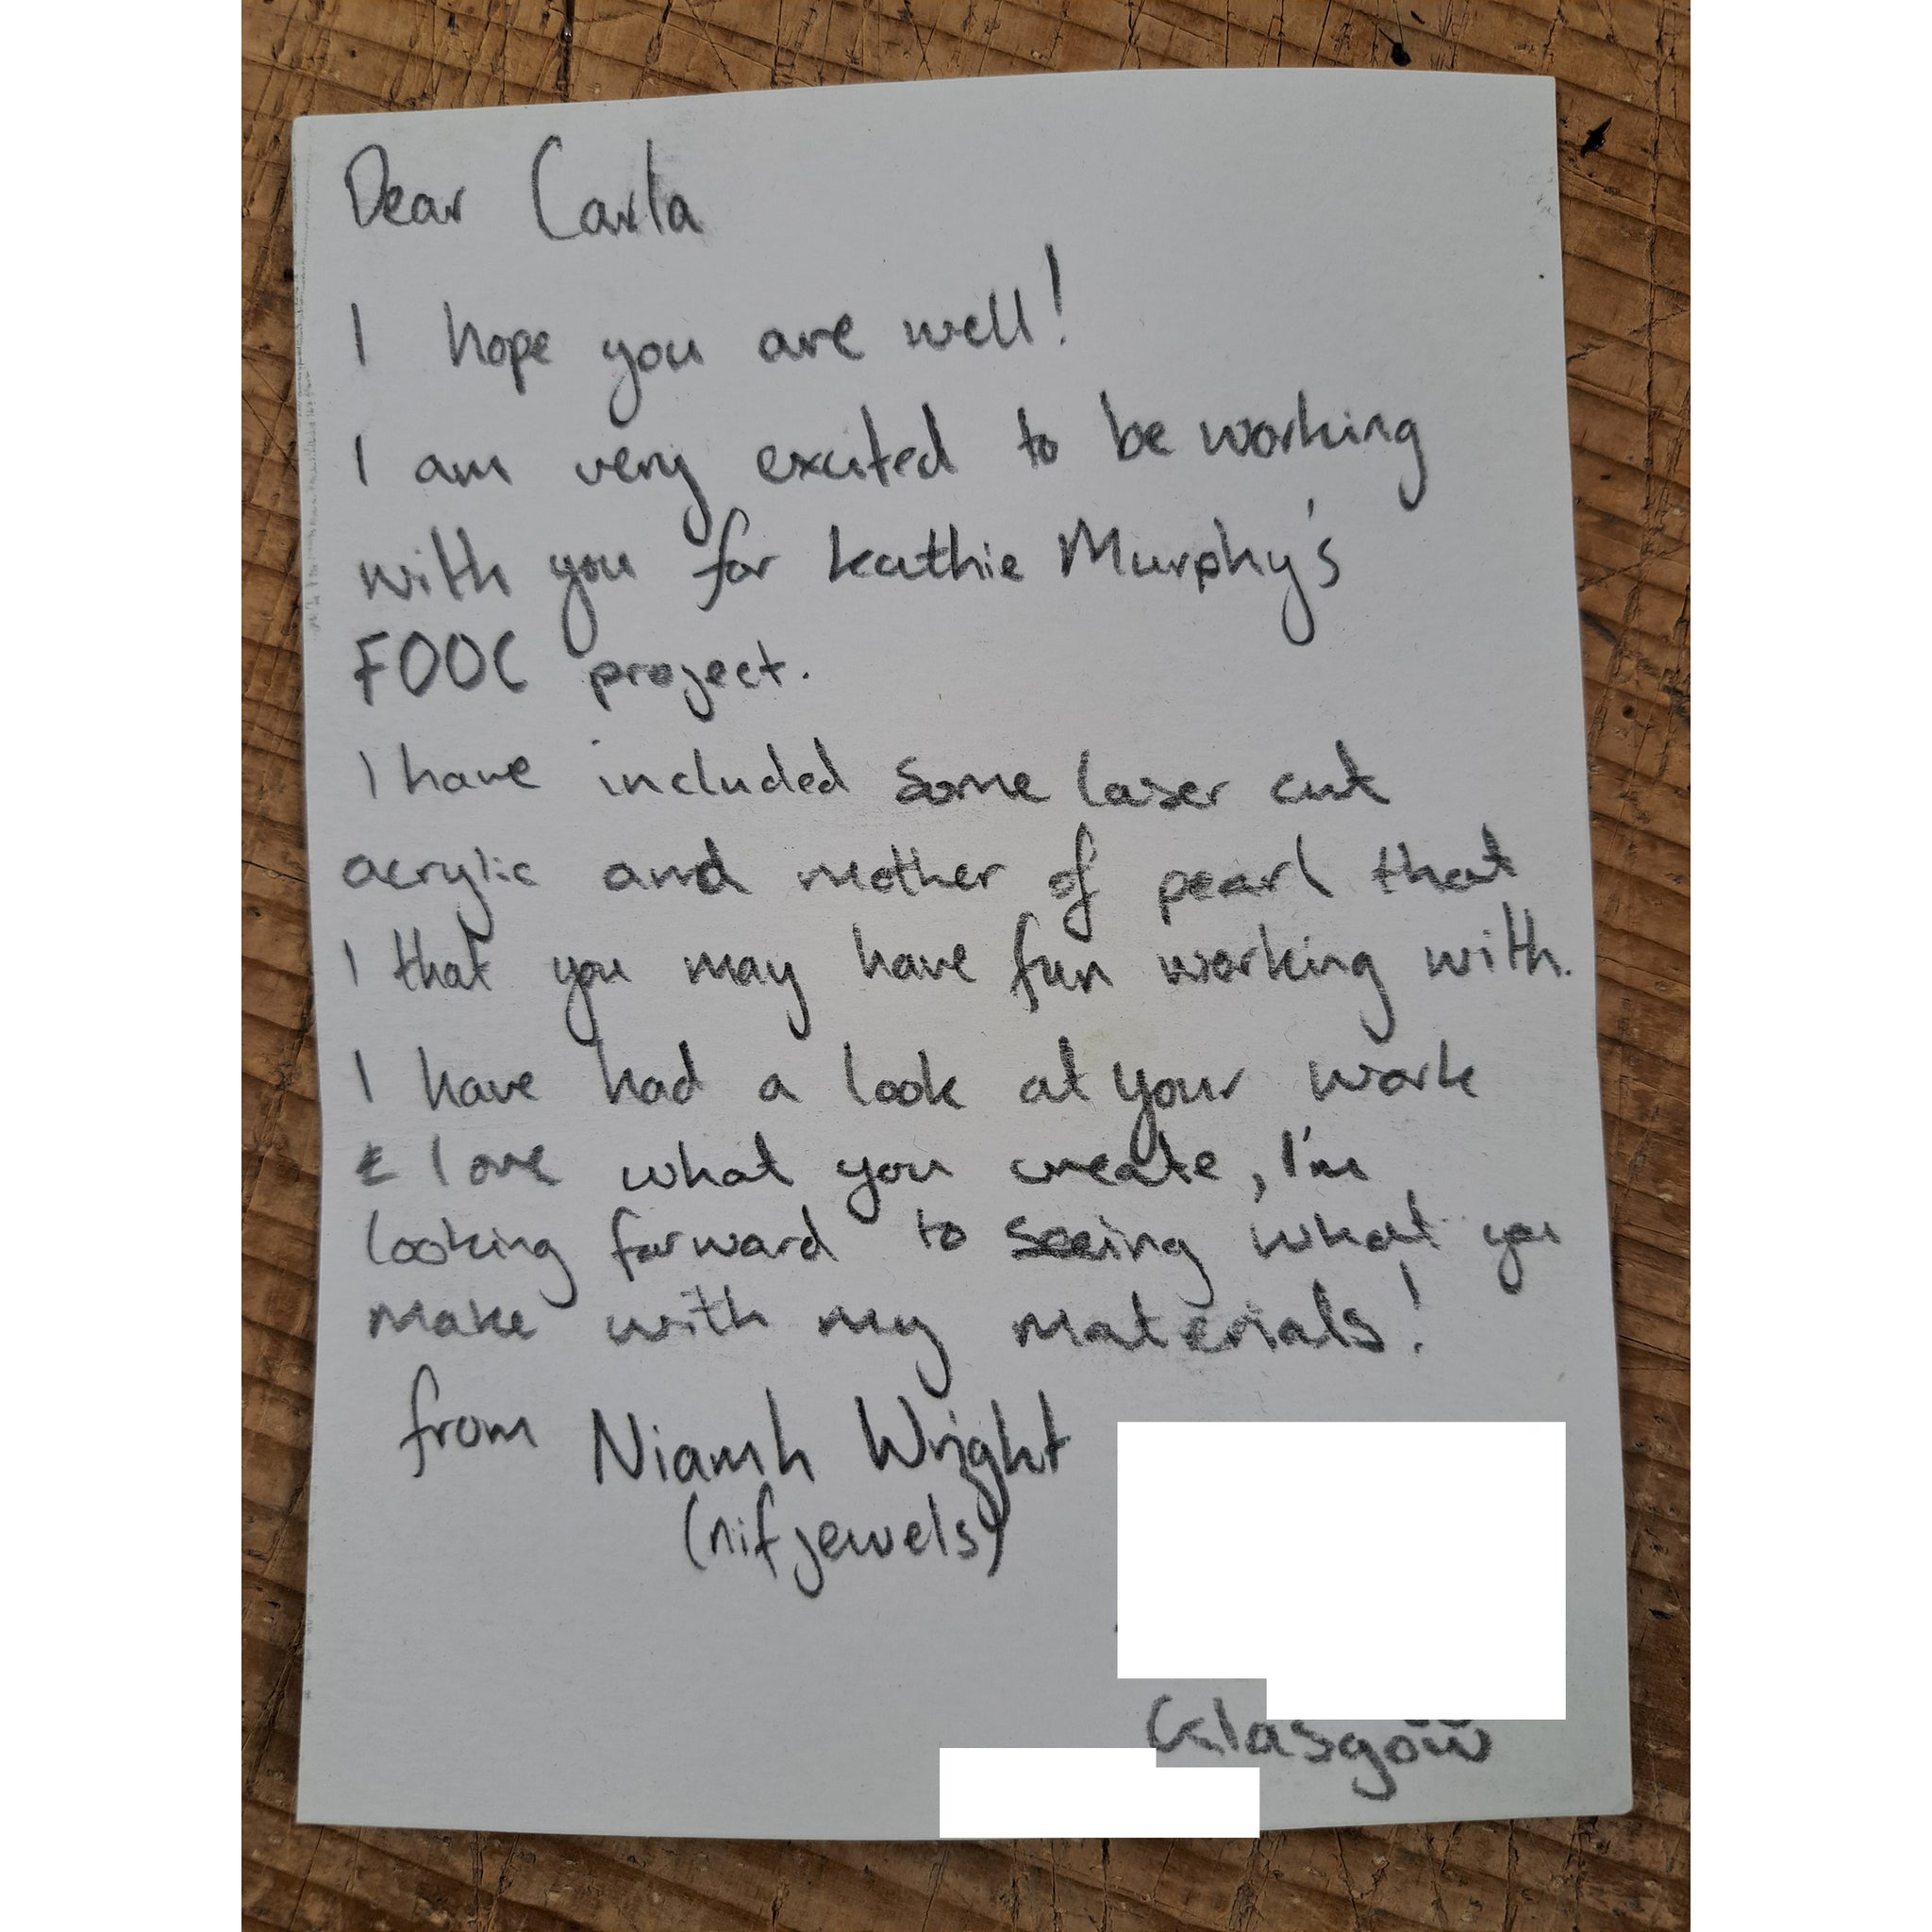 Dear Carla
I hope you are well!
I am very excited to be working
with you for Kathie Murphy's
FOOC project.
I have included some laser cut
acrylic and mother of pearl that
I that you may have fun working with.
I have had a look at your work
& love what you create, I'm
looking forward to seeing what you
make with my materials!
from Niamh Wright
(nifjewels)
Glasgow